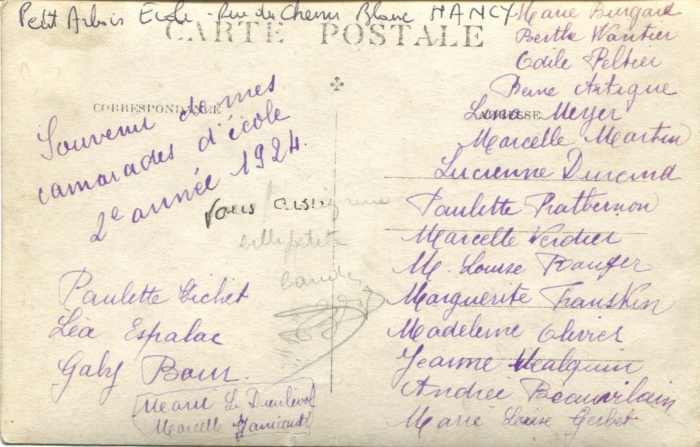 Petit Arbois École - Rue du Chemin Blanc NANCY
CARTE POSTALE
CORRESPONDANCE
ADRESSE
Souvenir de mes
camarades d'école
2e année 1924.
vous aussi
cette petite
bande
Paulette Cichet
Léa Espalac
Gaby Baur
Marie Le
Marcelle
Marie Burgard
Berthe Wantier
Odile Peltier
Artigue
Meyer
Marcelle Martin
Lucienne Durand
Paulette Pratbernon
Marcelle Verdier
M. Louise
Marguerite
Madeleine Olivier
Jeanne
Andrée Beauvilain
Marie Louise Gerbet